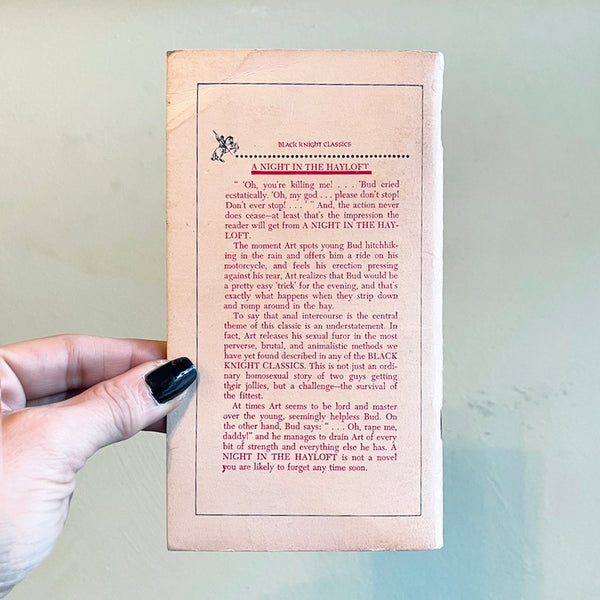 BLACK KNIGHT CLASSICS
A NIGHT IN THE HAYLOFT
" 'Oh, you're killing me! . . . 'Bud cried
ecstatically. 'Oh, my god . . . please don't stop!
Don't ever stop! . . . ' " And, the action never
does cease—at least that's the impression the
reader will get from A NIGHT IN THE HAY-
LOFT.
The moment Art spots young Bud hitchhik-
ing in the rain and offers him a ride on his
motorcycle, and feels his erection pressing
against his rear, Art realizes that Bud would be
a pretty easy 'trick' for the evening, and that's
exactly what happens when they strip down
and romp around in the hay.
To say that anal intercourse is the central
theme of this classic is an understatement. In
fact, Art releases his sexual furor in the most
perverse, brutal, and animalistic methods we
have yet found described in any of the BLACK
KNIGHT CLASSICS. This is not just an ordi-
nary homosexual story of two guys getting
their jollies, but a challenge—the survival of
the fittest.
At times Art seems to be lord and master
over the young, seemingly helpless Bud. On
the other hand, Bud says: " . . . Oh, rape me,
daddy!" and he manages to drain Art of every
bit of strength and everything else he has. A
NIGHT IN THE HAYLOFT is not a novel
you are likely to forget any time soon.